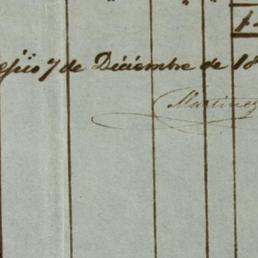 7 de Diciembre de 18
Martinez